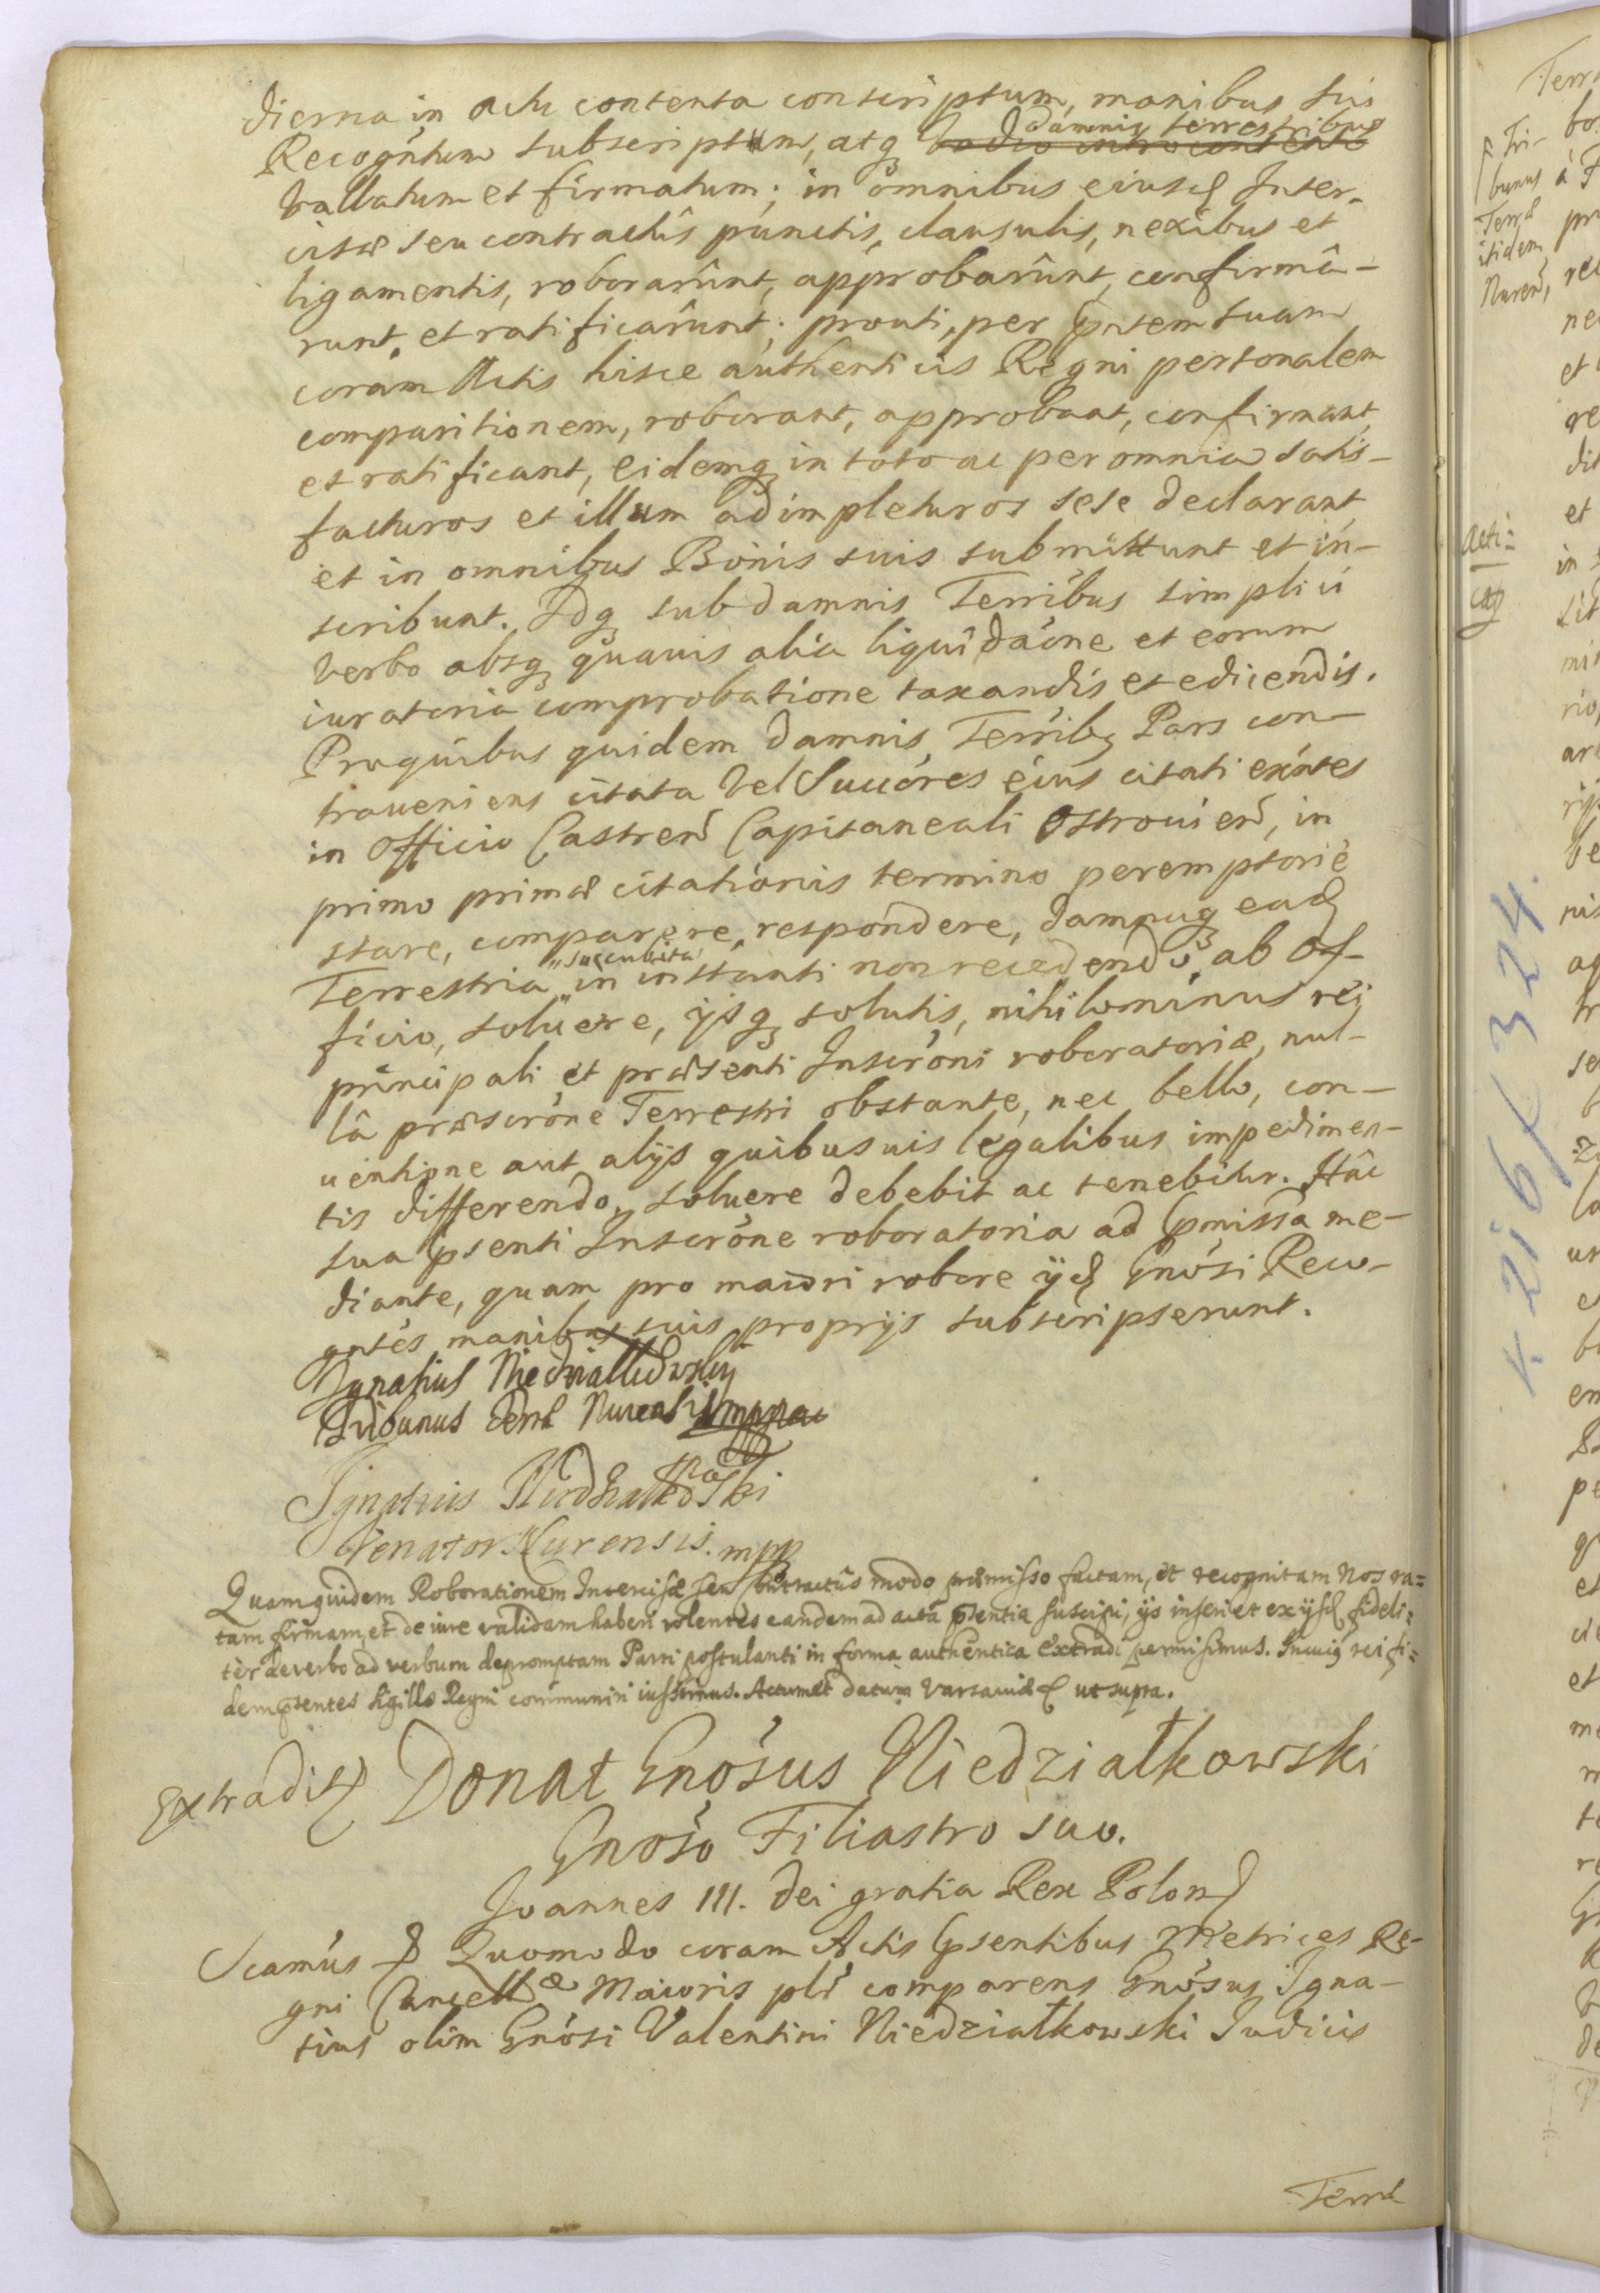 dierna in actu contenta conscriptum, manibus suis
damnis terrestribus
Recogñtium subscriptum, atq̃ vadio intro contento
vallatum et firmatum; in omnibus eiusd Inter-
cisæ seu contractûs punctis, clausulis, nexibus et
ligamentis, roborarûnt, approbarûnt, confirmâ-
runt, et ratificarûnt; prouti, per pñtem suam
coram Actis hisce authenticis Regni personalem
comparitionem, roborant, approbant, confirmant,
et ratificant, eidemq̃ in toto ac per omnia satis-
facturos et illum adimpleturos sese declarant
et in omnibus Bonis suis submittunt et in-
scribunt. Idq̃ sub damnis Terribus simplici
verbo absq̃ quauis alia liquidaõne et eorum
iuratoria comprobatione taxandis et edicendis.
Pro quibus quidem damnis Terribq̃ Pars con-
traueniens citata vel Succõres eius citati exñtes
in Officio Castreñ Capitaneali Ostrouieñ, in
primo primæ citationis termino peremptorie
stare, comparere, respondere, damnaq̃ ead
succubita
Terrestria in instanti non recedendo ab Of-
ficio, soluere, ijsq̃ solutis, nihilominus rei
principali et præsenti Inscrõni roboratoriæ, nul-
lâ præscrõne Terrestri obstante, nec bello, con-
uentione aut alijs quibusuis legalibus impedimen-
tis differendo, soluere debebit ac tenebitur. Hâc
sua psenti Inscrõne roboratoria ad pmissa me-
diante, quam pro maiori robore ijd Gnõsi Reco-
gntes manibus suis proprijs subscripserunt.
Ignatius Niedziałkowsky
Tribunus Terræ Nurensis mppa
Ignatius Niedziałkowski
Venator Nurensis. mpp
Quam quidem Roborationem Intercisæ seu contractûs modo præmisso factam, et recognitam Nos ra=
tam firmam, et de iure validam haberi volentes eandem ad acta psentia suscipi, ijs inseri et ex ijsd fideli=
ter de verbo ad verbum depromptam Parti postulanti in forma authentica extradi permisimus. In cuiq̃ rei fi=
dem psentes sigillo Regni communiri iussimus. Actum et datum Varsauiæ ut supra.
Extradit Donat Gnosus Niedziałkowski
Gnoso Filiastro suo.
Joannes III. Dei gratia Rex Polon
Scamus Quomodo coram Actis psentibus Metrices Re-
gni Cancellæ Maioris plr comparens Gnosus Igna-
tius olim Gnosi Valentini Niedziałkowski Judicis
Terræ
Tri-
bunus
Terræ
itidem
Nureñ,
acti=